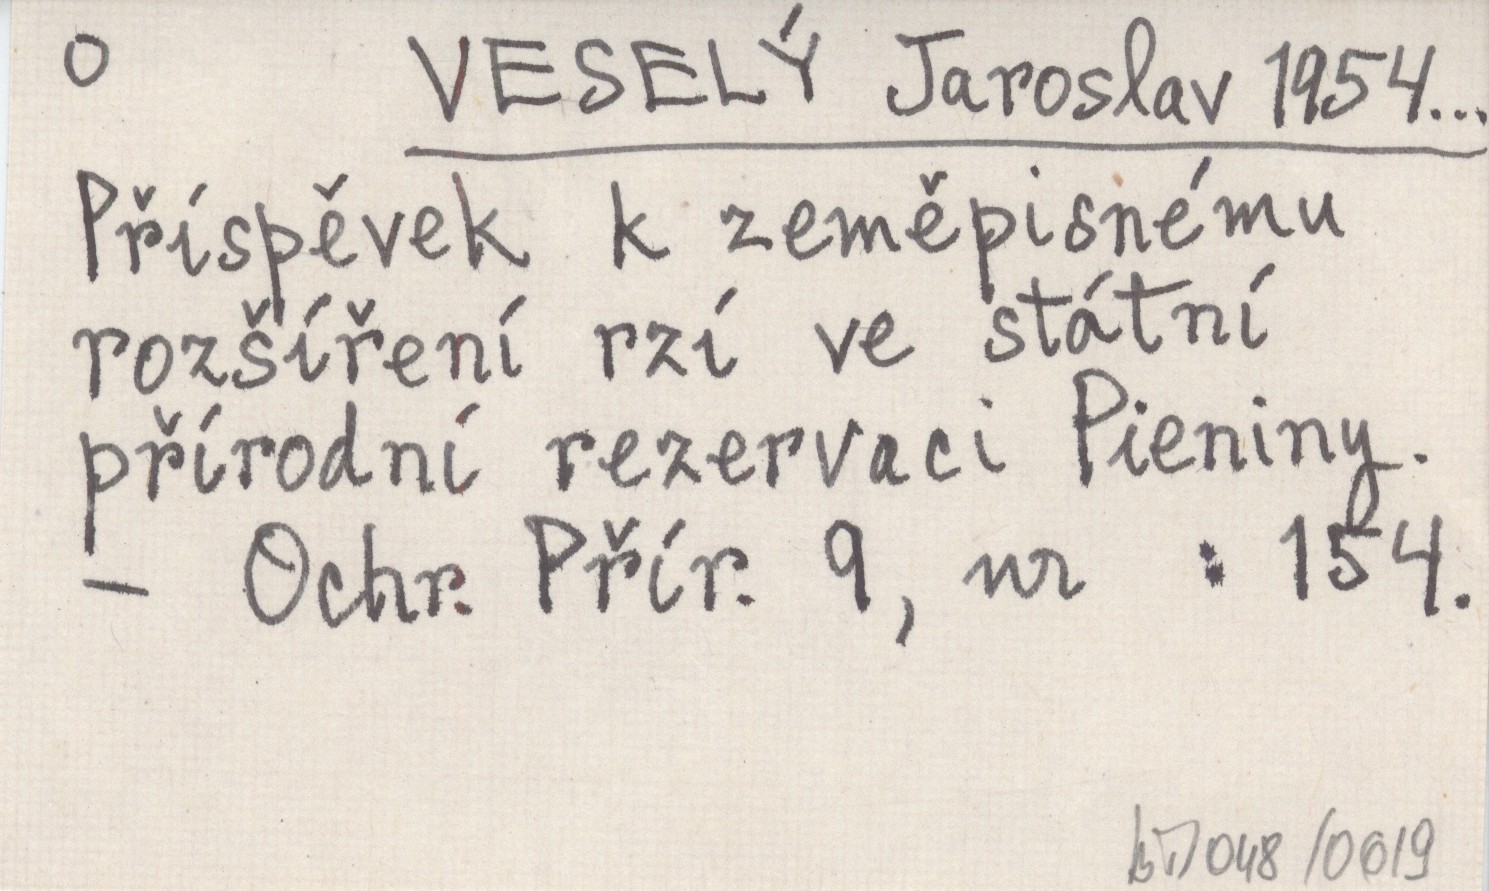 O VESELÝ Jaroslav 1954...
Příspěvek k zeměpisnému
rozšíření rzí ve státní
přírodní rezervaci Pieniny.
– Ochr. Přír. 9, nr : 154.
048/0019